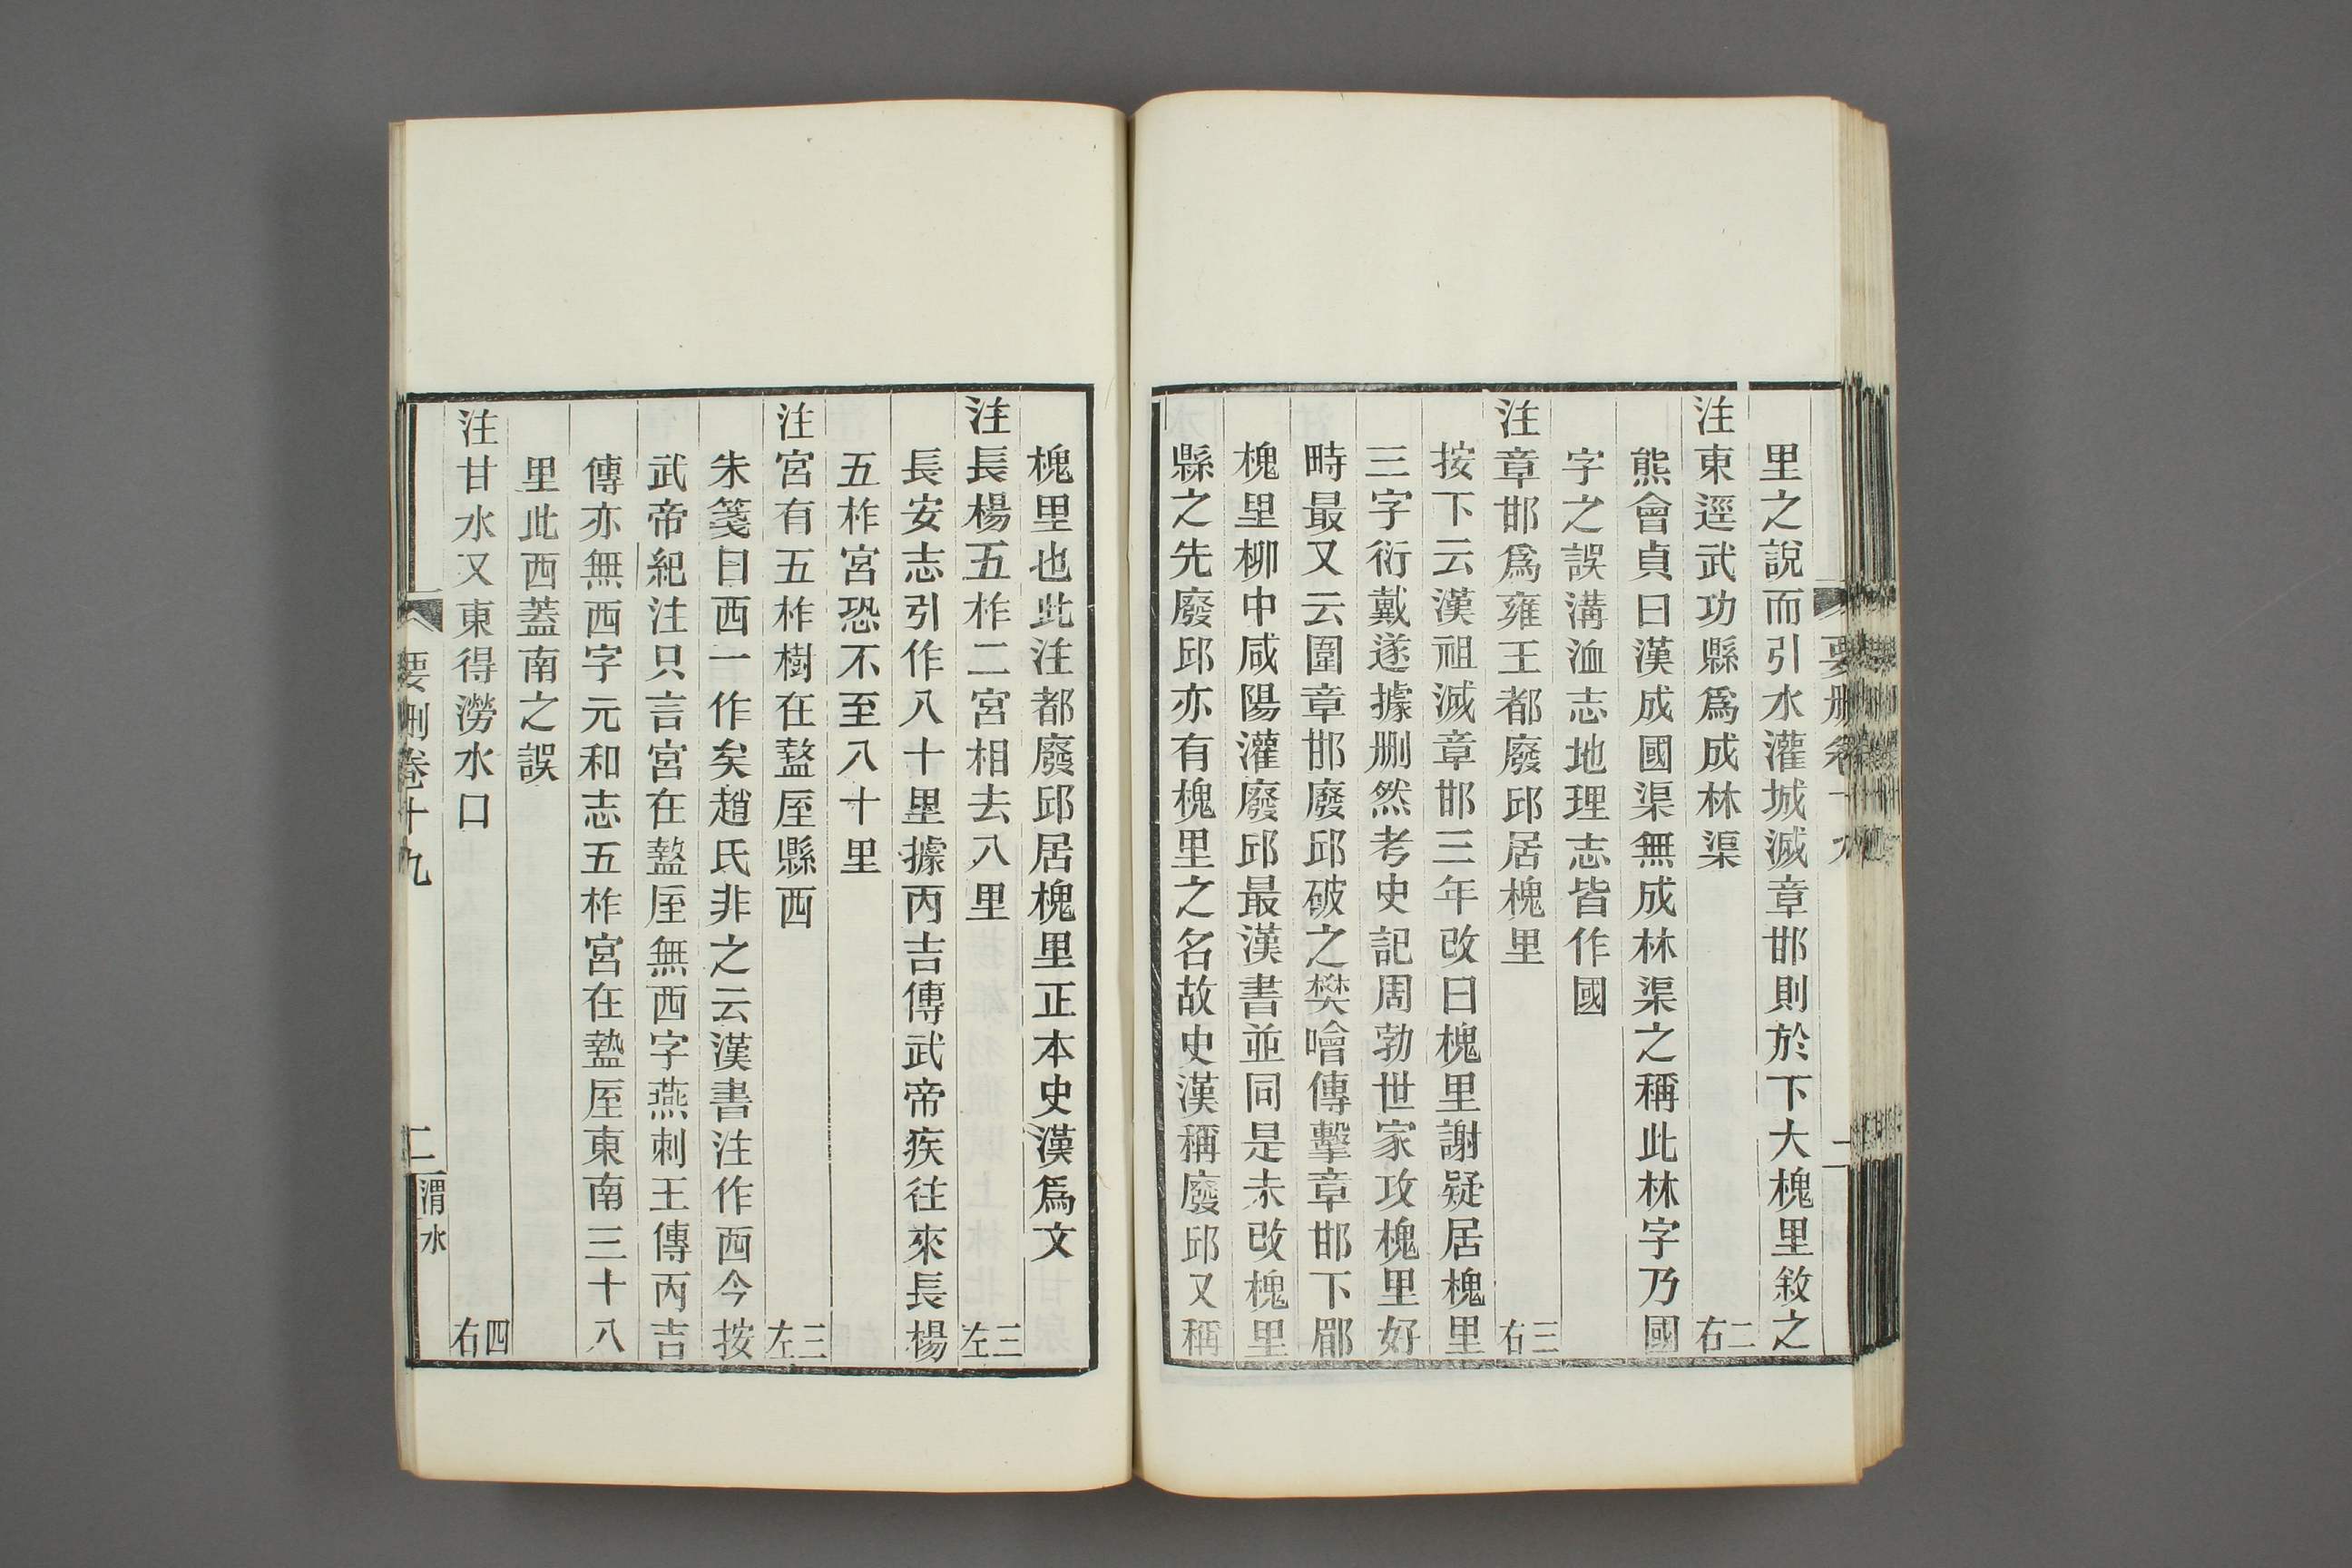 里之說而引水灌城滅章邯則於下大槐里敘之
注東逕武功縣爲成林渠 二右
熊會貞曰漢成國渠無成林渠之稱此林字乃國
字之誤溝洫志地理志皆作國
注章邯爲雍王都廢邱居槐里 三右
按下云漢祖滅章邯三年改曰槐里謝疑居槐里
三字衍戴遂據刪然考史記周勃世家攻槐里好
畤最又云圍章邯廢邱破之樊噲傳擊章邯下郿
槐里柳中咸陽灌廢邱最漢書並同是未改槐里
縣之先廢邱亦有槐里之名故史漢稱廢邱又稱
槐里也此注都廢邱居槐里正本史漢爲文
注長楊五柞二宮相去八里 三左
長安志引作八十里據丙吉傳武帝疾往來長楊
五柞宮恐不至八十里
注宮有五柞樹在盩厔縣西 三左
朱箋曰西一作矣趙氏非之云漢書注作西今按
武帝紀注只言宮在盩厔無西字燕刺王傳丙吉
傳亦無西字元和志五柞宮在盩厔東南三十八
里此西蓋南之誤
注甘水又東得澇水口 四右
要刪卷十九 二 渭水